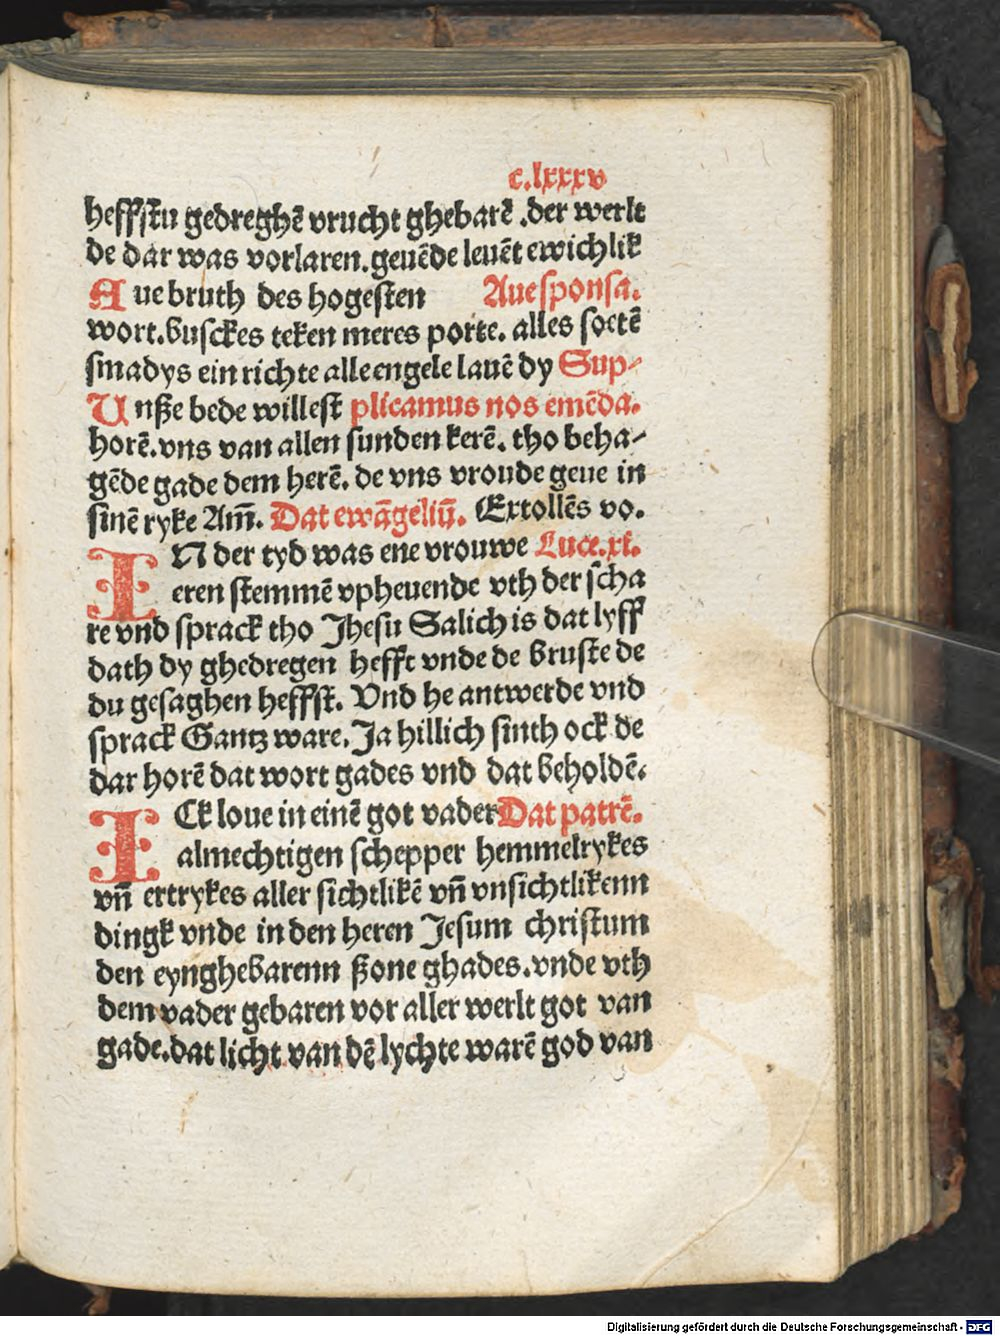 c.lxxxv
heffstu gedreghē vrucht ghebarē .der werlt
de dar was vorlaren.geuēde leuēt ewichlik
Aue bruth des hogesten Aue sponsa.
wort.busckes teken meres porte. alles soetē
smadys ein richte alle engele lauē dy Sup⸗
Unße bede willest plicamus nos emēda.
horē.vns van allen sunden kerē. tho beha⸗
gēde gade dem herē. de vns vroude geue in
sinē ryke Am̄. Dat ewāgeliū. Extollēs vo.
IN der tyd was ene vrouwe Luce.xi.
eren stemmē vpheuende vth der scha
re vnd sprack tho Jhesu Salich is dat lyff
dath dy ghedregen hefft vnde de bruste de
du gesaghen heffst. Vnd he antwerde vnd
sprack Gantz ware.Ja hillich sinth ock de
dar horē dat wort gades vnd dat beholdē.
ICk loue in einē got vader Dat patrē.
almechtigen schepper hemmelrykes
vn̄ ertrykes aller sichtlikē vn̄ vnsichtlikenn
dingk vnde in den heren Jesum christum
den eynghebarenn ßone ghades.vnde vth
dem vader gebaren vor aller werlt got van
gade.dat licht van dē lychte warē god van
Digitalisierung gefördert durch die Deutsche Forschungsgemeinschaft - DFG